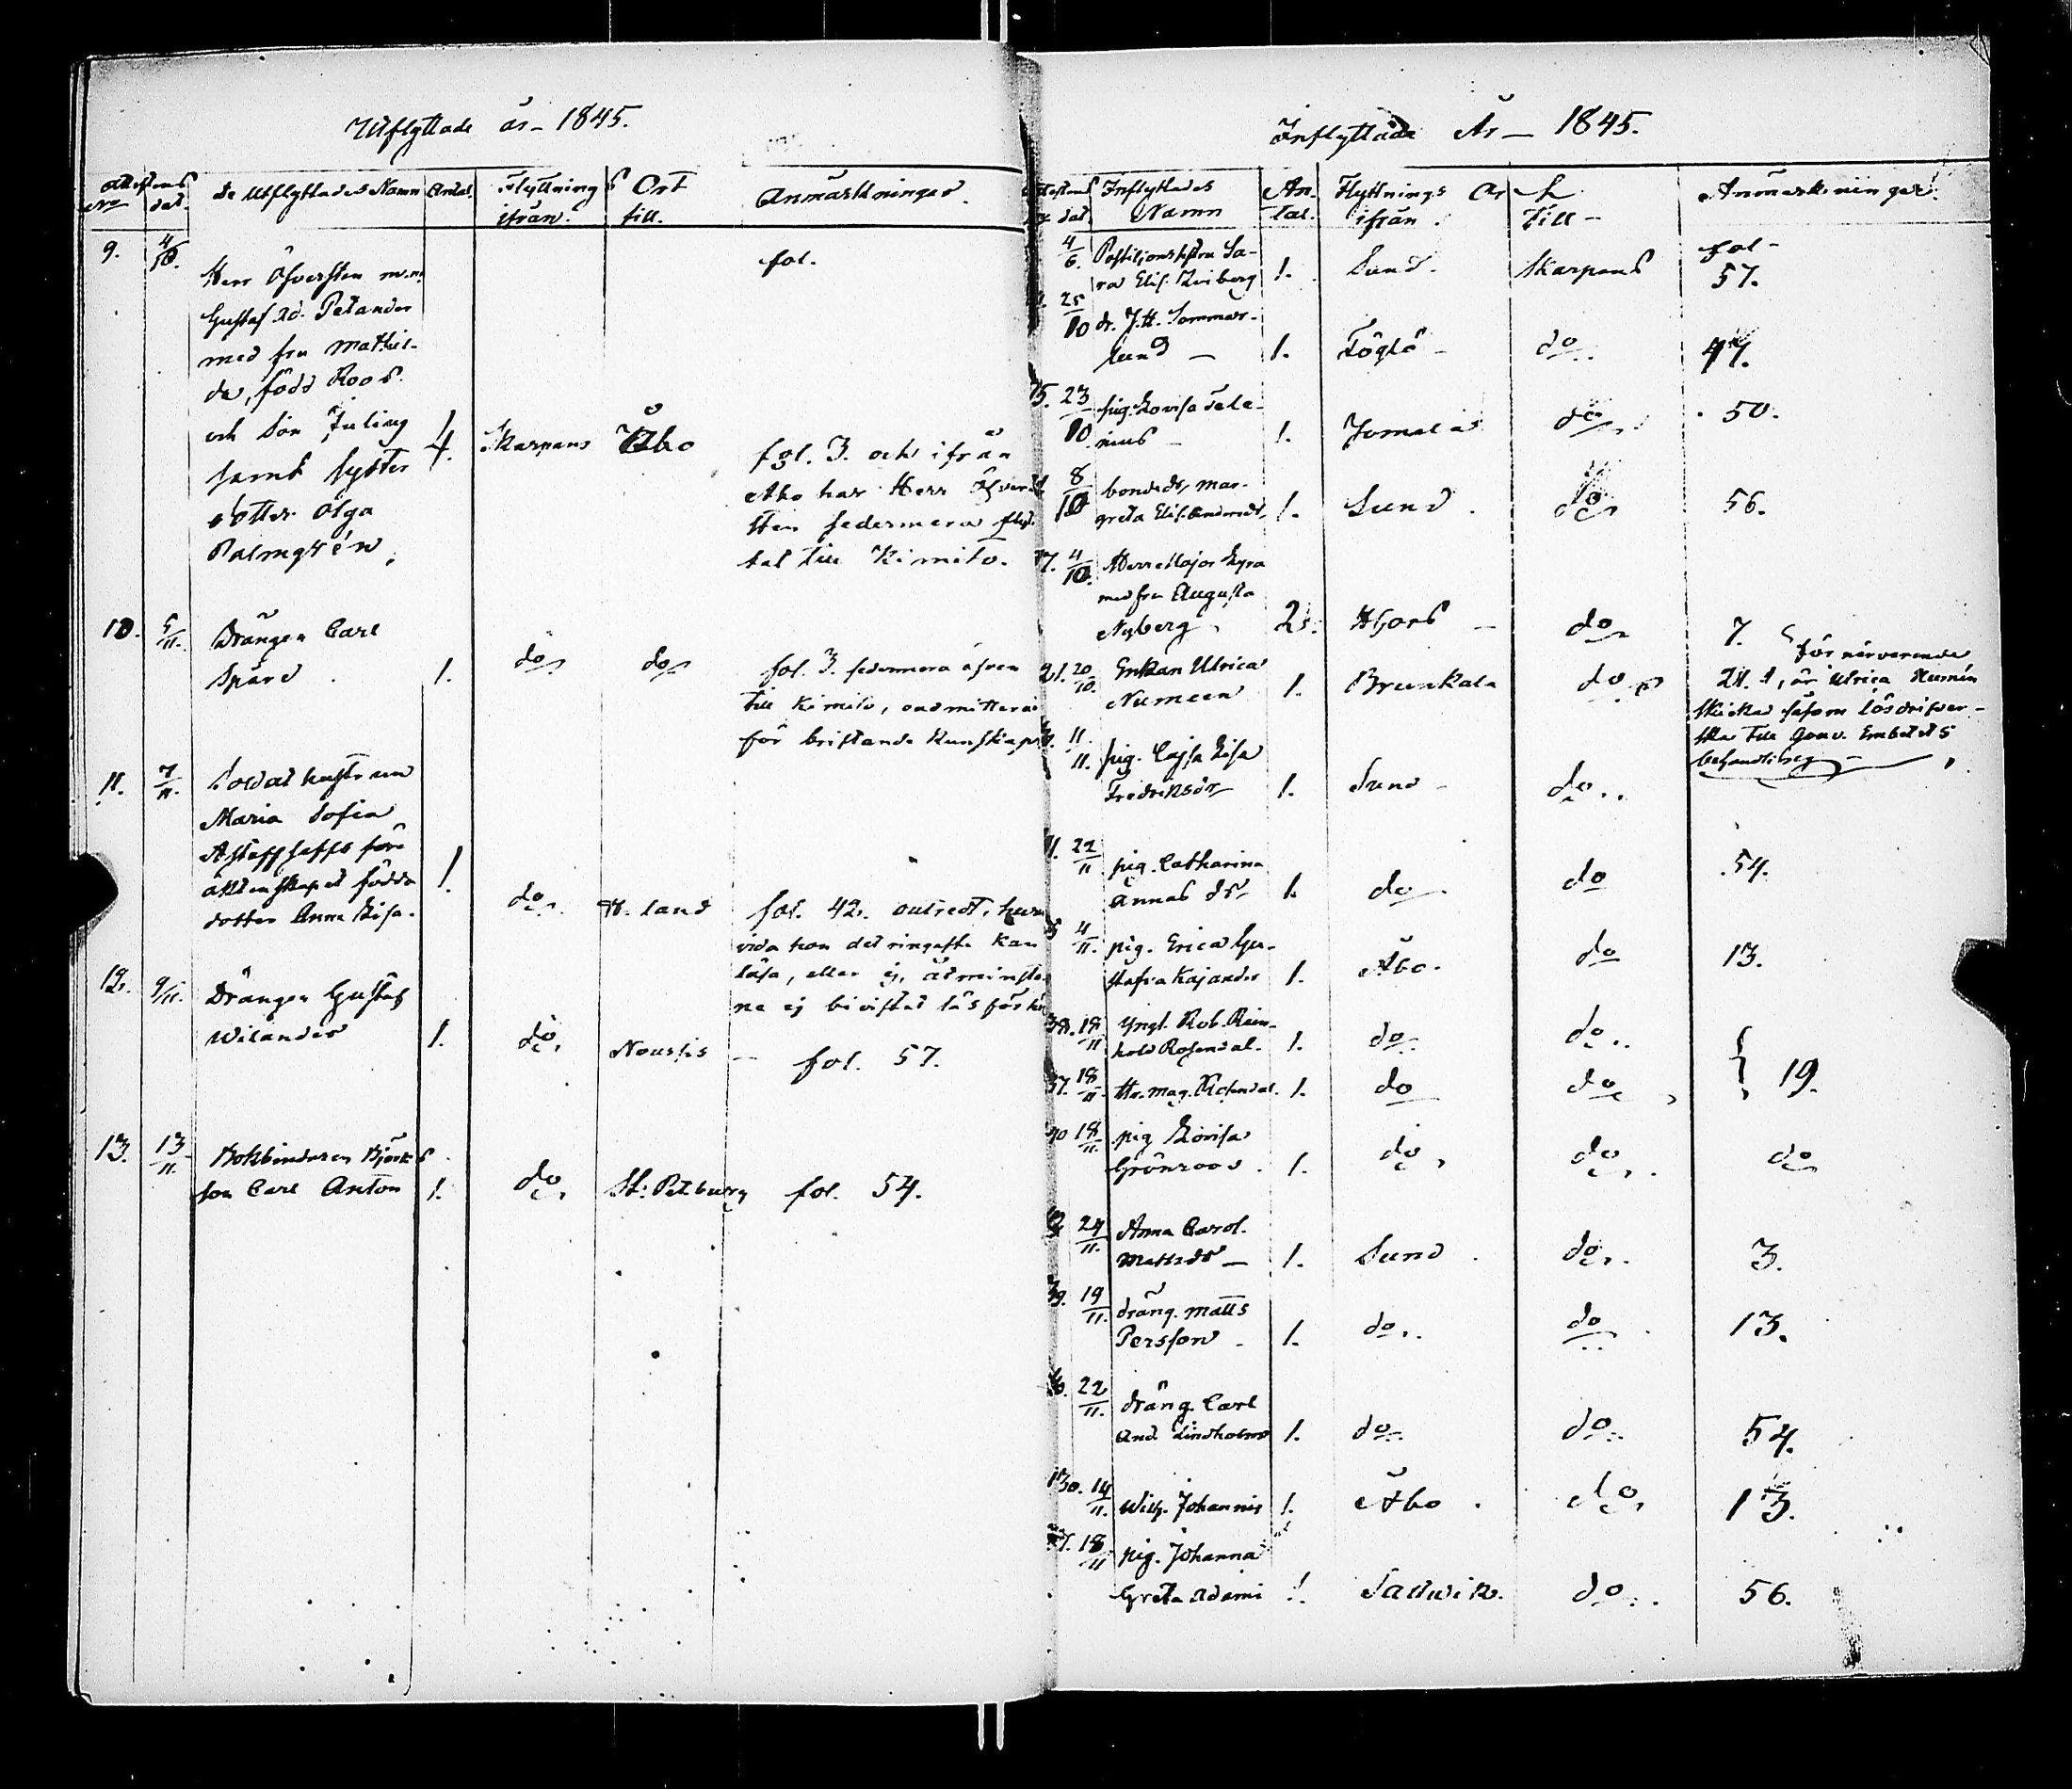 Utflyttade år 1845.
Attestens No dat.
De Utflyttades Namn
Antal.
Flyttnings Ort
ifrån. till.
Anmärkningar.
9. 4/10.
Herr Öfversten m.m.
Gustaf Ad. Petander
med fru Mathil-
da, född Roos.
och Son Juling
samt syster
dotter Olga
Palmgrén.
4. Skarpans Åbo
fol.
fol. 3. och ifrån
Åbo har Herr Öfver-
sten sedermera flyt-
tat till Kimito.
10. 5/11. Drängen Carl
Spard. 1. do do
fol. 3. sedermera äfven
till Kimito, oadmitterad
för bristande kunskaper
11. 7/11. Soldat hustrun
Maria Sofia
före
äktenskapet födda
dotter Anna Lisa.
1. do. land
fol. 42. outredt, huru
vida hon det ringaste kan
läsa, eller ej, åtminsto-
ne ej bivistat läsförhör
12. 9/11. Drängen Gustaf
Wilander 1. do. Nousis – fol. 57.
13. 13/11. Bokbindaren Björks
son Carl Anton 1. do. St: Petburg fol. 54.
Inflyttade År – 1845.
Inflyttades
Namn
An-
tal.
Flyttnings Ort
ifrån. till –
Anmärkningar.
4/6. Postiljonshstrn Sa-
ra Elis. 1. Sund. Skarpans fol – 57.
25/10 dr. J. H. Sommar-
lund – 1. Föglö – do. 47.
15. 23/10 pig. Lovisa Tele-
nius – 1. Jomala do. 50.
8/10 bondedr, Mar-
greta Elis. 1. Sund. do 56.
17. 4/10. Herr Major Lyra
med fru Augusta
Nyberg. 2. do 7.
21. 20/10. Enkan Ulrica
Numeen 1. Brunkala do
24. för närvarande
är Ulrica Numén
skickad såsom lösdrifver-
ska till Guv. Embetets
behandling –
11/11. pig. Cajsa Lisa
Fredriksdr 1. Sund – do.
22/11 pig. Catharina
Annas dr 1. do. do 54.
4/11. pig. Erica Gu-
stafva Kajander 1. Åbo. do 13.
38. 18/11 Yngl. Rob. Rein-
hold Rosendal. 1. do do.
37. 18/11. Hr. Mag. Rosendal. 1. do do } 19.
40 18/11. pig Lovisa
Grönroos. 1. do. do. do
24/11. Anna Carol.
Mattsdr – 1. Sund. do. 3.
39. 19/11. dräng. Matts
Persson. 1. do. do. 13.
22/11. dräng. Carl
And. Lindholm 1. do do. 54.
30. 14/11. Wilh. Johannis 1. Åbo. do. 13.
18/11 pig. Johanna
Greta Adami 1. Saltvik. do. 56.